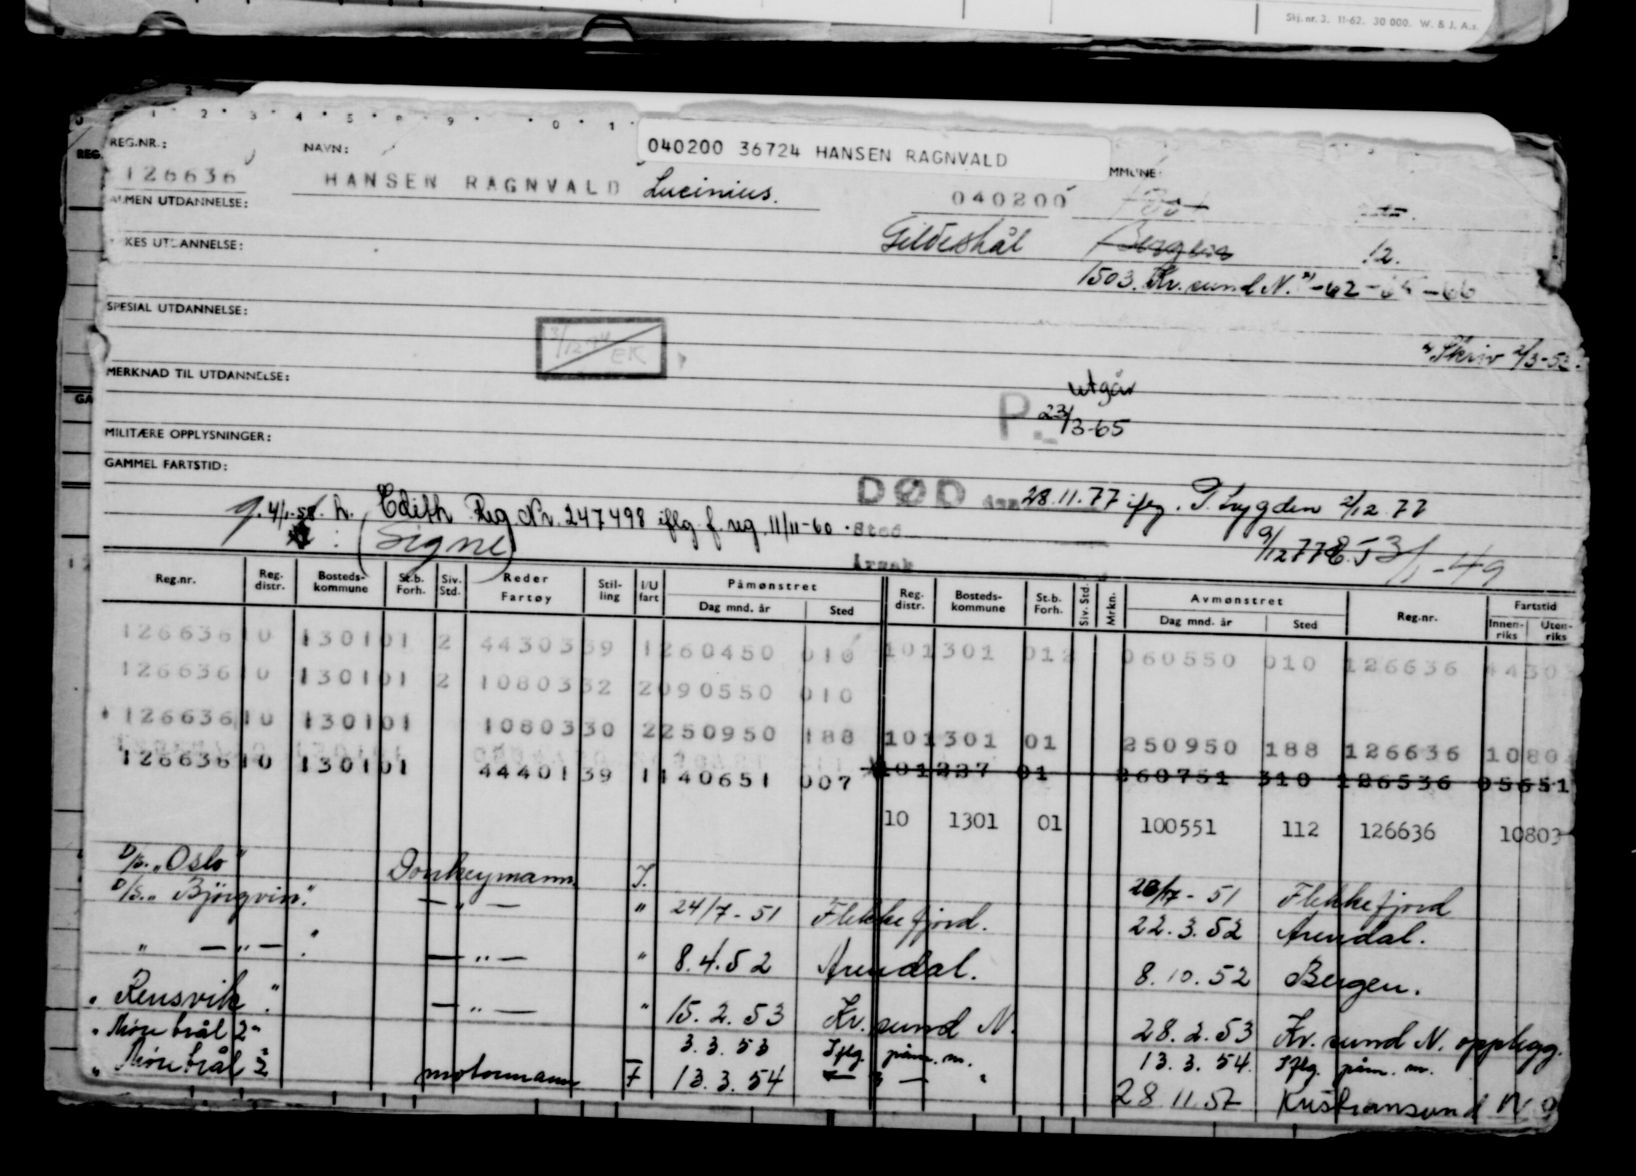 Skj. nr. 3. 11-62. 30 000. W. & J. A.s.
040200 36724 HANSEN RAGNVALD
REG.NR.: NAVN:
126636 HANSEN RAGNVALD Lucinius. 040200
UTDANNELSE: Gildeskål Bergen 12.
1503. Kr.sund N.
SPESIAL UTDANNELSE:
Skriv 2/3-53.
MERKNAD TIL UTDANNELSE:
utgår
P. 23/3-65
MILITÆRE OPPLYSNINGER:
GAMMEL FARTSTID:
DØD den 28.11.77 iflg. T. Lygden 2/12 77
g. 4/1-58. h. Edith Reg Nr. 247498 iflg f. reg 11/11-60. Sted
(Signe) 3/1-49
Årsak
Reg.nr. Reg. distr. Bosteds-kommune St.b. Forh. Siv. Std. Reder Fartøy Stil-ling I/U fart Påmønstret Dag mnd. år Sted Reg. distr. Bosteds-kommune St.b. Forh. Siv. Std. Mrkn. Avmønstret Dag mnd. år Sted Reg.nr. Fartstid Innen-riks Uten-riks
126636 10 1301 01 2 44303 39 1 260450 010 10 1301 01 2 060550 010 126636 44303
126636 10 1301 01 2 10803 32 2 090550 010
126636 10 1301 01 10803 30 2 250950 188 10 1301 01 250950 188 126636 10803
126636 10 1301 01 44401 39 1 140651 007 101227 01 260751 310 126536 05651
10 1301 01 100551 112 126636 10803
D/S. "Oslo" Donkeymann I. 23/7-51 Flekkefjord
D/S. "Bjørgvin". — " — " 24/7-51 Flekkefjord. 22.3.52 Arendal.
" — " — " . — " — " 8.4.52 Arendal. 8.10.52 Bergen.
" Rensvik ". — " — " 15.2.53 Kr.sund N. 28.2.53 Kr.sund N. opplegg.
" Mørebrål 2" 3.3.53 Iflg. påm. m. 13.3.54. Iflg. påm. m.
" Mørebrål 2" motormann F 13.3.54 — " — " 28.11.57 Kristiansund N